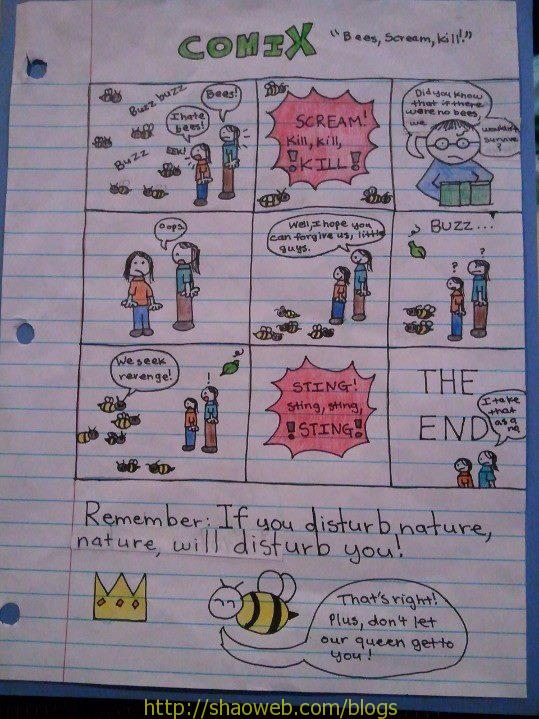 COMIX
"Bees, Scream, Kill!"
Buzz buzz
Bees!
I hate
bees!
EEK!
Buzz
SCREAM!
Kill, Kill,
!KILL!
Did you know
that if there
were no bees,
we
wouldn't
survive
?
Oops.
Well, I hope you
can forgive us, little
guys.
BUZZ...
?
?
We seek
revenge!
!
STING!
Sting, sting,
!STING!
THE
END
I take
that
as a
no.
Remember: If you disturb nature,
nature, will disturb you!
That's right!
Plus, don't let
our queen get to
you!
http://shaoweb.com/blogs